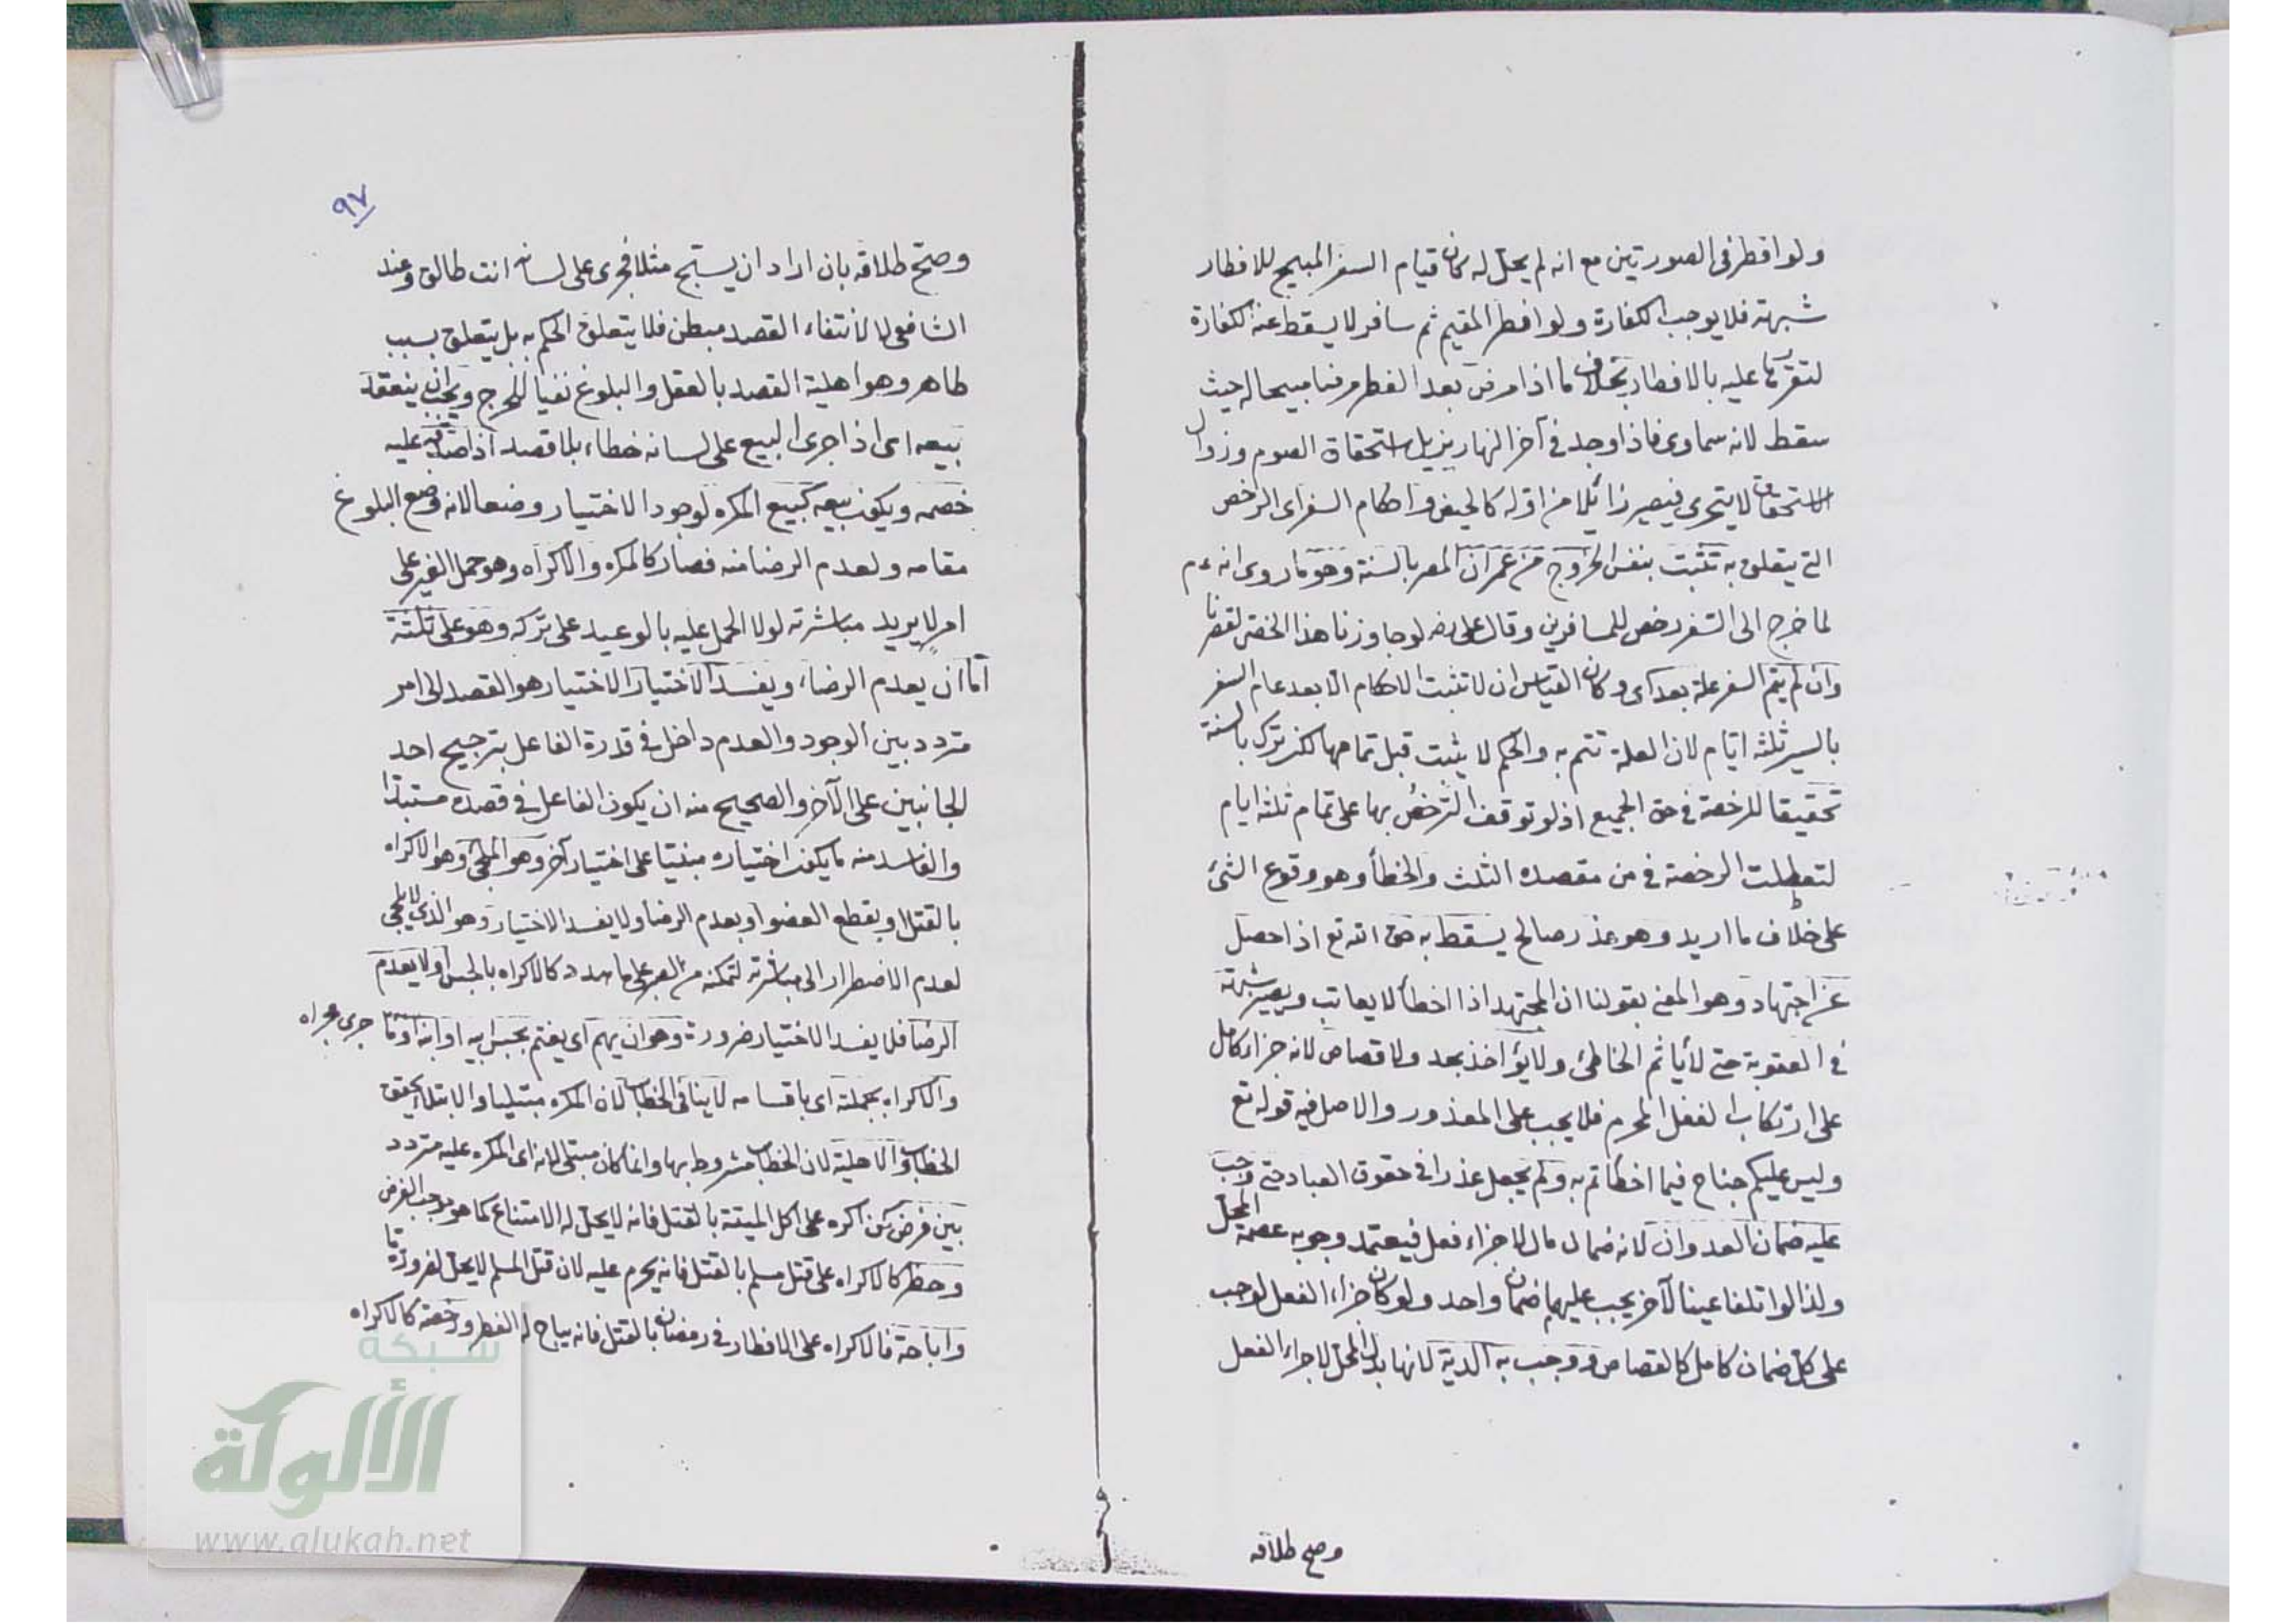 ولو افطر في الصورتين مع انه لم يحل له كان قيام السفر المبيح للافطار
شبهة فلا يوجب الكفارة ولو افطر المقيم ثم سافر لا يسقط عنه الكفارة
لتقررها عليه بالافطار بخلاف ما اذا مرض بعد الفطر مرضا مبيحا له حيث
سقط لانه سماوى فاذا وجد في آخر النهار يزيل استحقاق الصوم وزوال
الاستحقاق لا يتجرى فيصير زائلا من اوله كالحيض واحكام السفر اى الرخص
التي يتعلق به تثبت بنفس الخروج من عمران المصر بالسنة وهو ما روى انه عم
لما خرج الى السفر رخص للمسافرين وقال على رضه لو جاوزنا هذا الخص لقصرنا
وان لم يتم السفر علة بعد اى وكان القياس ان لا تثبت الاحكام الا بعد تمام السفر
بالسير ثلثة ايام لان العلة تتم به والحكم لا يثبت قبل تمامها لكن ترك بالسنة
تحقيقا للرخصة في حق الجميع اذ لو توقف الترخص بها على تمام ثلثة ايام
لتعطلت الرخصة في من مقصده الثلث والخطأ وهو وقوع الشئ
على خلاف ما اريد وهو عذر صالح يسقط به حق الله تع اذا حصل
عن اجتهاد وهو المعنى بقولنا ان المجتهد اذا اخطأ لا يعاتب ويصير شبهة
في العقوبة حتى لا يأثم الخاطئ ولا يؤاخذ بحد ولا قصاص لانه جزاء كامل
على ارتكاب الفعل المحرم فلا يجب على المعذور والاصل فيه قوله تع
وليس عليكم جناح فيما اخطأتم به ولم يجعل عذرا في حقوق العباد حتى وجب
عليه ضمان العدوان لانه ضمان مال لا جزاء فعل فيعتمد وجوبه عصمة المحل
ولذا لو اتلفا عينا لآخر يجب عليهما ضمان واحد ولو كان جزاء الفعل لوجب
على كل ضمان كامل كالقصاص ووجب به الدية لانها بدل المحل لا جزاء الفعل
وصح طلاقه
٩٧
وصح طلاقه بان اراد ان يسبح مثلا فجرى على لسانه انت طالق وعند
الشافعي لا لانتفاء القصد مبطن فلا يتعلق الحكم به بل يتعلق بسبب
ظاهر وهو اهلية القصد بالعقل والبلوغ نفيا للحرج ويجب ان ينعقد
بيعه اى اذا جرى البيع على لسانه خطاء بلا قصد اذا صدقه عليه
خصمه ويكون بيعه كبيع المكره لوجود الاختيار وضعا لانه وضع البلوغ
مقامه ولعدم الرضا منه فصار كالمكره والاكراه وهو حمل الغير على
امر لا يريد مباشرته لولا الحمل عليه بالوعيد على تركه وهو على ثلثة
اما ان يعدم الرضاء ويفسد الاختيار الاختيار هو القصد الى امر
متردد بين الوجود والعدم داخل في قدرة الفاعل بترجيح احد
الجانبين على الآخر والصحيح منه ان يكون الفاعل في قصده مستبدا
والفاسد منه ما يكون اختياره مبنيا على اختيار آخر وهو الملجئ وهو الاكراه
بالقتل او بقطع العضو او يعدم الرضا ولا يفسد الاختيار وهو الذي لا يلجئ
لعدم الاضطرار الى مباشرته لتمكنه من الصبر على ما هدد كالاكراه بالحبس او لا يعدم
الرضا فلا يفسد الاختيار ضرورة وهو ان يهم اى يغتم بحبس ابيه او ابنه او ما جرى مجراه
والاكراه بجملته اى باقسامه لا ينافي الخطاب لان المكره مبتلى والابتلاء يحقق
الخطاب والاهلية لان الخطاب مشروط بها وانما كان مبتلى لانه اى المكره عليه متردد
بين فرض كمن اكره على اكل الميتة بالقتل فانه لا يحل له الامتناع كما هو موجب الفرض
وحظر كالاكراه على قتل مسلم بالقتل فانه يحرم عليه لان قتل المسلم لا يحل لضرورة ما
واباحة فالاكراه على الافطار في رمضان بالقتل فانه يباح له الفطر ورخصة كالاكراه
شبكة
الألوكة
www.alukah.net